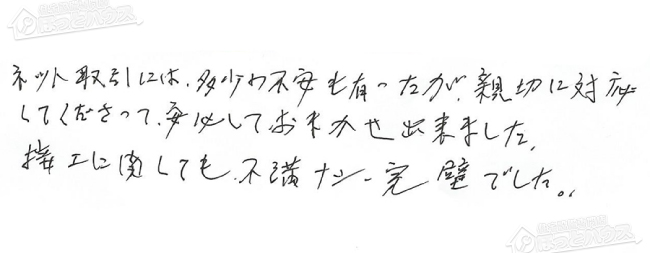 ネット取引には、多少の不安も有ったが、親切に対応
してくださって、安心しておまかせ出来ました。
施工に関しても、不満ナシ、完璧でした。